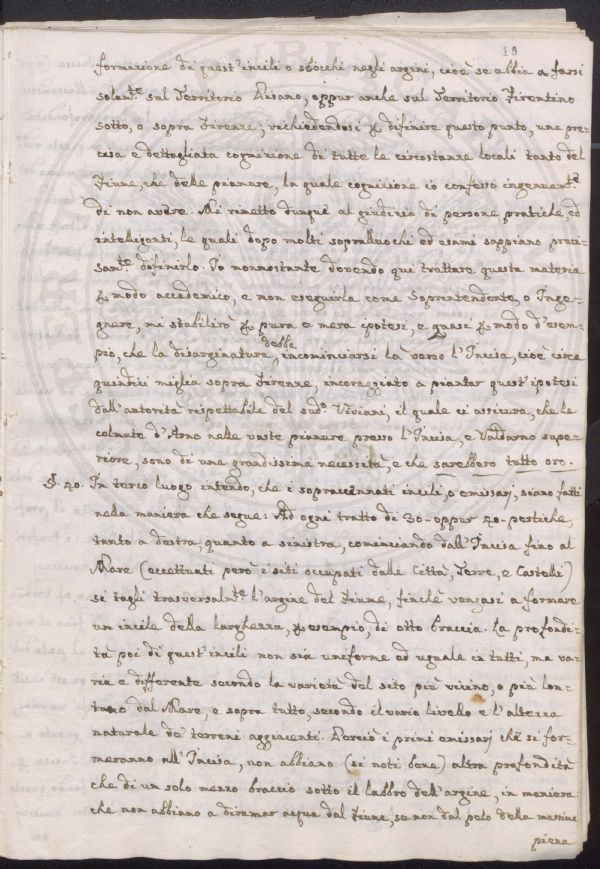 19
formazione di quest'incili o sbocchi negli argini, cioè se abbia a farsi
solam.te sul Territorio Pisano, oppur anche sul Territorio Fiorentino
sotto, o sopra Firenze; richiedendosi p definire questo punto, una pre=
cisa e dettagliata cognizione di tutte le circostanze locali tanto del
Fiume, che delle pianure, la quale cognizione io confesso ingenuam.te
di non avere. Mi rimetto dunque al giudizio di persone pratiche, ed
intelligenti, le quali dopo molti sopralluochi ed esami sappiano preci=
sam.te difinirlo. Io nonnostante dovendo qui trattare questa materia
p modo accademico, e non eseguirla come Soprintendente, o Inge=
gnere, mi stabilirò p pura e mera ipotesi, e quasi p modo d'esem=
pio, che la disarginatura debba incominciarsi là verso l'Incisa, cioè circa
quindici miglia sopra Firenze, incoraggiato a piantar quest'ipotesi
dall'autorità rispettabile del sud.o Viviani, il quale ci assicura, che le
colmate d'Arno nelle vaste pianure presso l'Incisa, e Valdarno supe=
riore, sono di una grandissima necessità, e che sarebbero tutto oro.
§. 20. In terzo luogo intendo, che i sopraccennati incili, o emissarj, siano fatti
nella maniera che segue: Ad ogni tratto di 30- oppur 40- pertiche,
tanto a destra, quanto a sinistra, cominciando dall'Incisa fino al
Mare (eccettuati però i siti occupati dalle Città, Terre, e Castelli)
si tagli trasversalm.te l'argine del Fiume, finchè vengasi a formare
un incile della larghezza, p esempio, di otto braccia. La profondi=
tà poi di quest'incili non sia uniforme ed uguale in tutti, ma va=
ria e differente secondo la varietà del sito più vicino, o più lon=
tano dal Mare, e sopra tutto, secondo il vario livello e l'altezza
naturale de' terreni aggiacenti. Perciò i primi emissarj che si for=
meranno all'Incisa, non abbiano (si noti bene) altra profondità
che di un solo mezzo braccio sotto il labbro dell'argine, in maniera
che non abbiano a diramar acqua dal Fiume, se non dal pelo della massima
piena